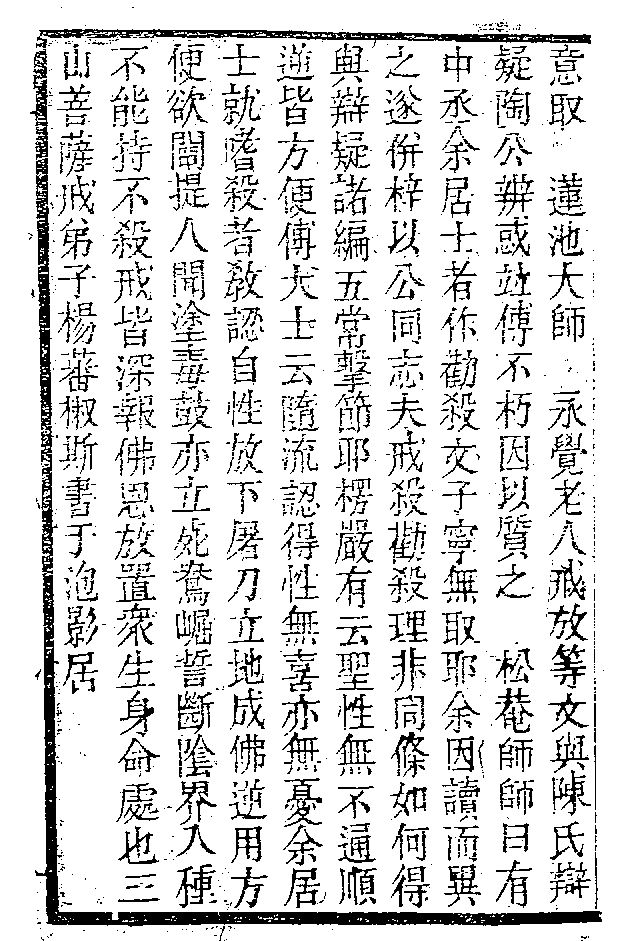 意取　蓮池大師　永覺老人戒放等文與陳氏辯
疑陶公辨惑竝傳不朽因以質之　松菴師師曰有
中丞余居士者作勸殺文子寧無取耶余因讀而異
之遂併梓以公同志夫戒殺勸殺理非同條如何得
與辯疑諸編五常擊節耶楞嚴有云聖性無不通順
逆皆方便傅大士云隨流認得性無喜亦無憂余居
士就嗜殺者敎認自性放下屠刀立地成佛逆用方
便欲闡提人聞塗毒鼓亦立死鴦崛誓斷陰界入種
不能持不殺戒皆深報佛恩放置衆生身命處也三
山菩薩戒弟子楊蕃椒斯書于泡影居